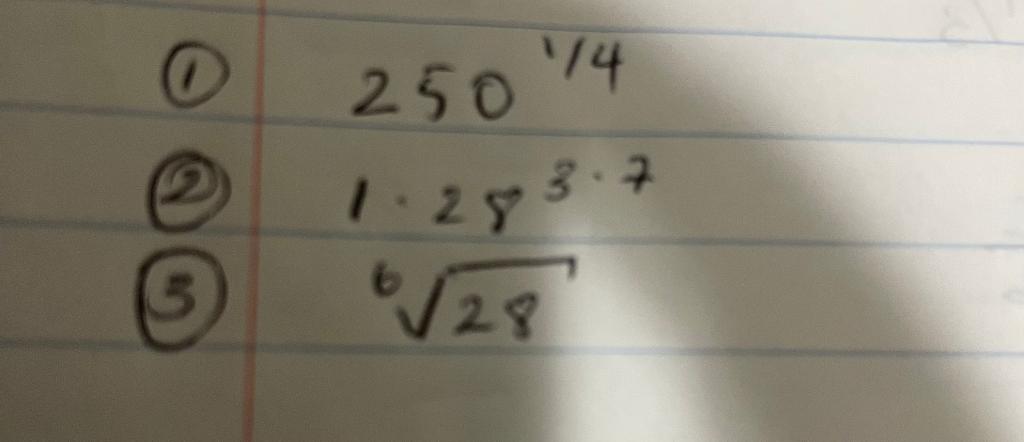 ① 250^1/4
② 1·28^3·7
③ ⁶√28